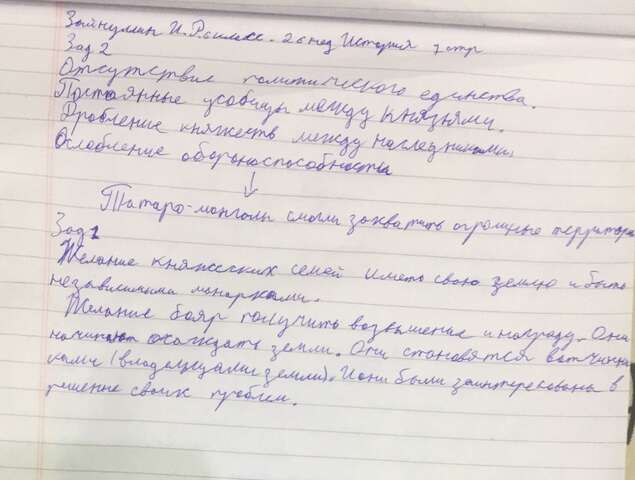 Зайнуллин И. Р. 6 класс. 26 нед История 7 стр
Зад 2
Отсутствие политического единства.
Постоянные усобицы между князьями.
Дробление княжеств между наследниками.
Ослабление обороноспособности
Татаро-монголы смогли захватить огромные территории
Зад 1
Желание княжеских семей иметь свою землю и быть
независимыми монархами.
Желание бояр получить возвышение и награду. Они
начинают осаждать земли. Они становятся вотчинни
ками (владельцами земли). И они были заинтересованы в
решение своих проблем.